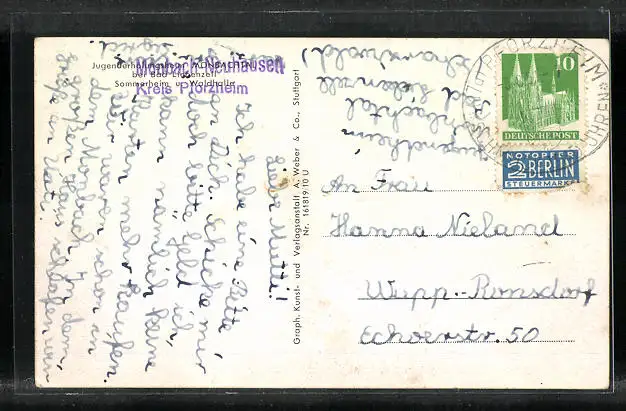 Jugenderholungsheim MONBACHTAL
bei Bad Liebenzell
Sommerheim u. Waldhalle
Unterreichenbach-Neuhausen
Kreis Pforzheim
Lieber Mutti!
Ich habe eine Bitte
an Dich. Schicke mir
doch bitte Geld ich
kann nämlich keine
Karten mehr kaufen.
Wir waren schon in
der Monbach. In dem
großen Haus schlafen wir.
Graph. Kunst- und Verlagsanstalt A. Weber & Co., Stuttgart
Nr. 161819/10 U
Jugendheim
Monbachtal
Bad Liebenzell
Schwarzwald
PFORZHEIM
UHREN
10
DEUTSCHE POST
NOTOPFER
2 BERLIN
STEUERMARKE
An Frau
Hanna Nieland
Wupp.-Ronsdorf
Echoerstr. 50